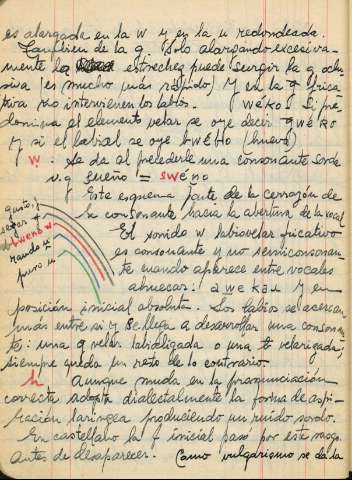 es alargada en la w y en la u redondeada.
Tambien de la g. Solo alargando excesiva-
mente la estrechez puede surgir la g oclu-
siva (es mucho más rápido) y en la g frica-
tiva no intervienen los labios. weko. Si pre-
domina el elemento velar se oye decir gweko
y si el labial se oye bwebo (huevo)
w. Se da al precederle una consonante sorda
v.g. sueño = swéno
Este esquema parte de la cerrazón de
la consonante hacia la abertura de la vocal
El sonido w labiovelar fricativo
es consonante y no semiconsonan-
te cuando aparece entre vocales
ahuecar: awekar y en
posición inicial absoluta. Los labios se acercan
más entre si y se llega a desarrollar una consonan-
te: una g velar labializada o una b velarizada,
siempre queda un resto de lo contrario.
h Aunque muda en la pronunciación
correcta adopta dialectalmente la forma de aspi-
ración laringea produciendo un ruido sordo.
En castellano la f inicial pasó por este rasgo
antes de desaparecer. Como vulgarismo se da la